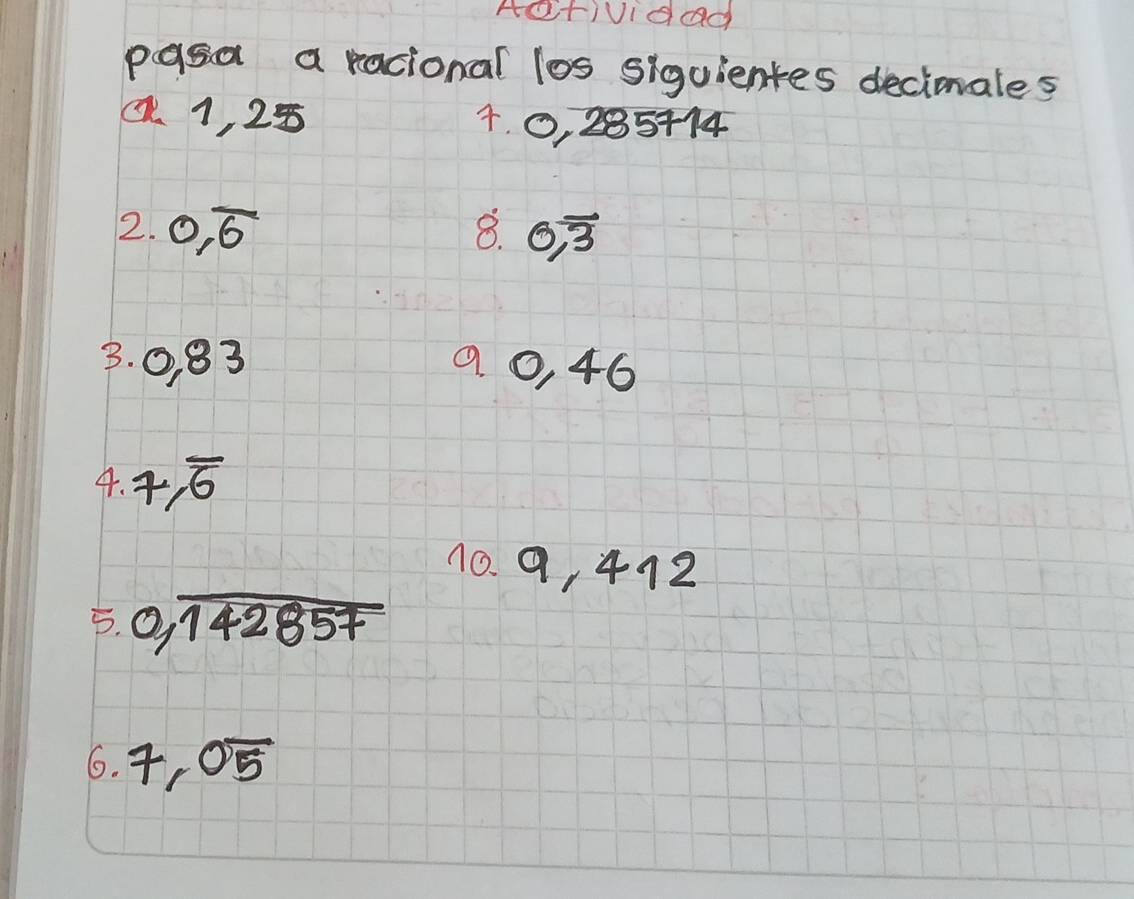 Actividad
pasa a racional los siguientes decimales
a. 1,25
7. 0,\overline{285714}
2. 0,\overline{6}
8. 0,\overline{3}
3. 0,83
9 0,46
4. 7,\overline{6}
10. 9,412
5. 0,\overline{142857}
6. 7,0\overline{5}